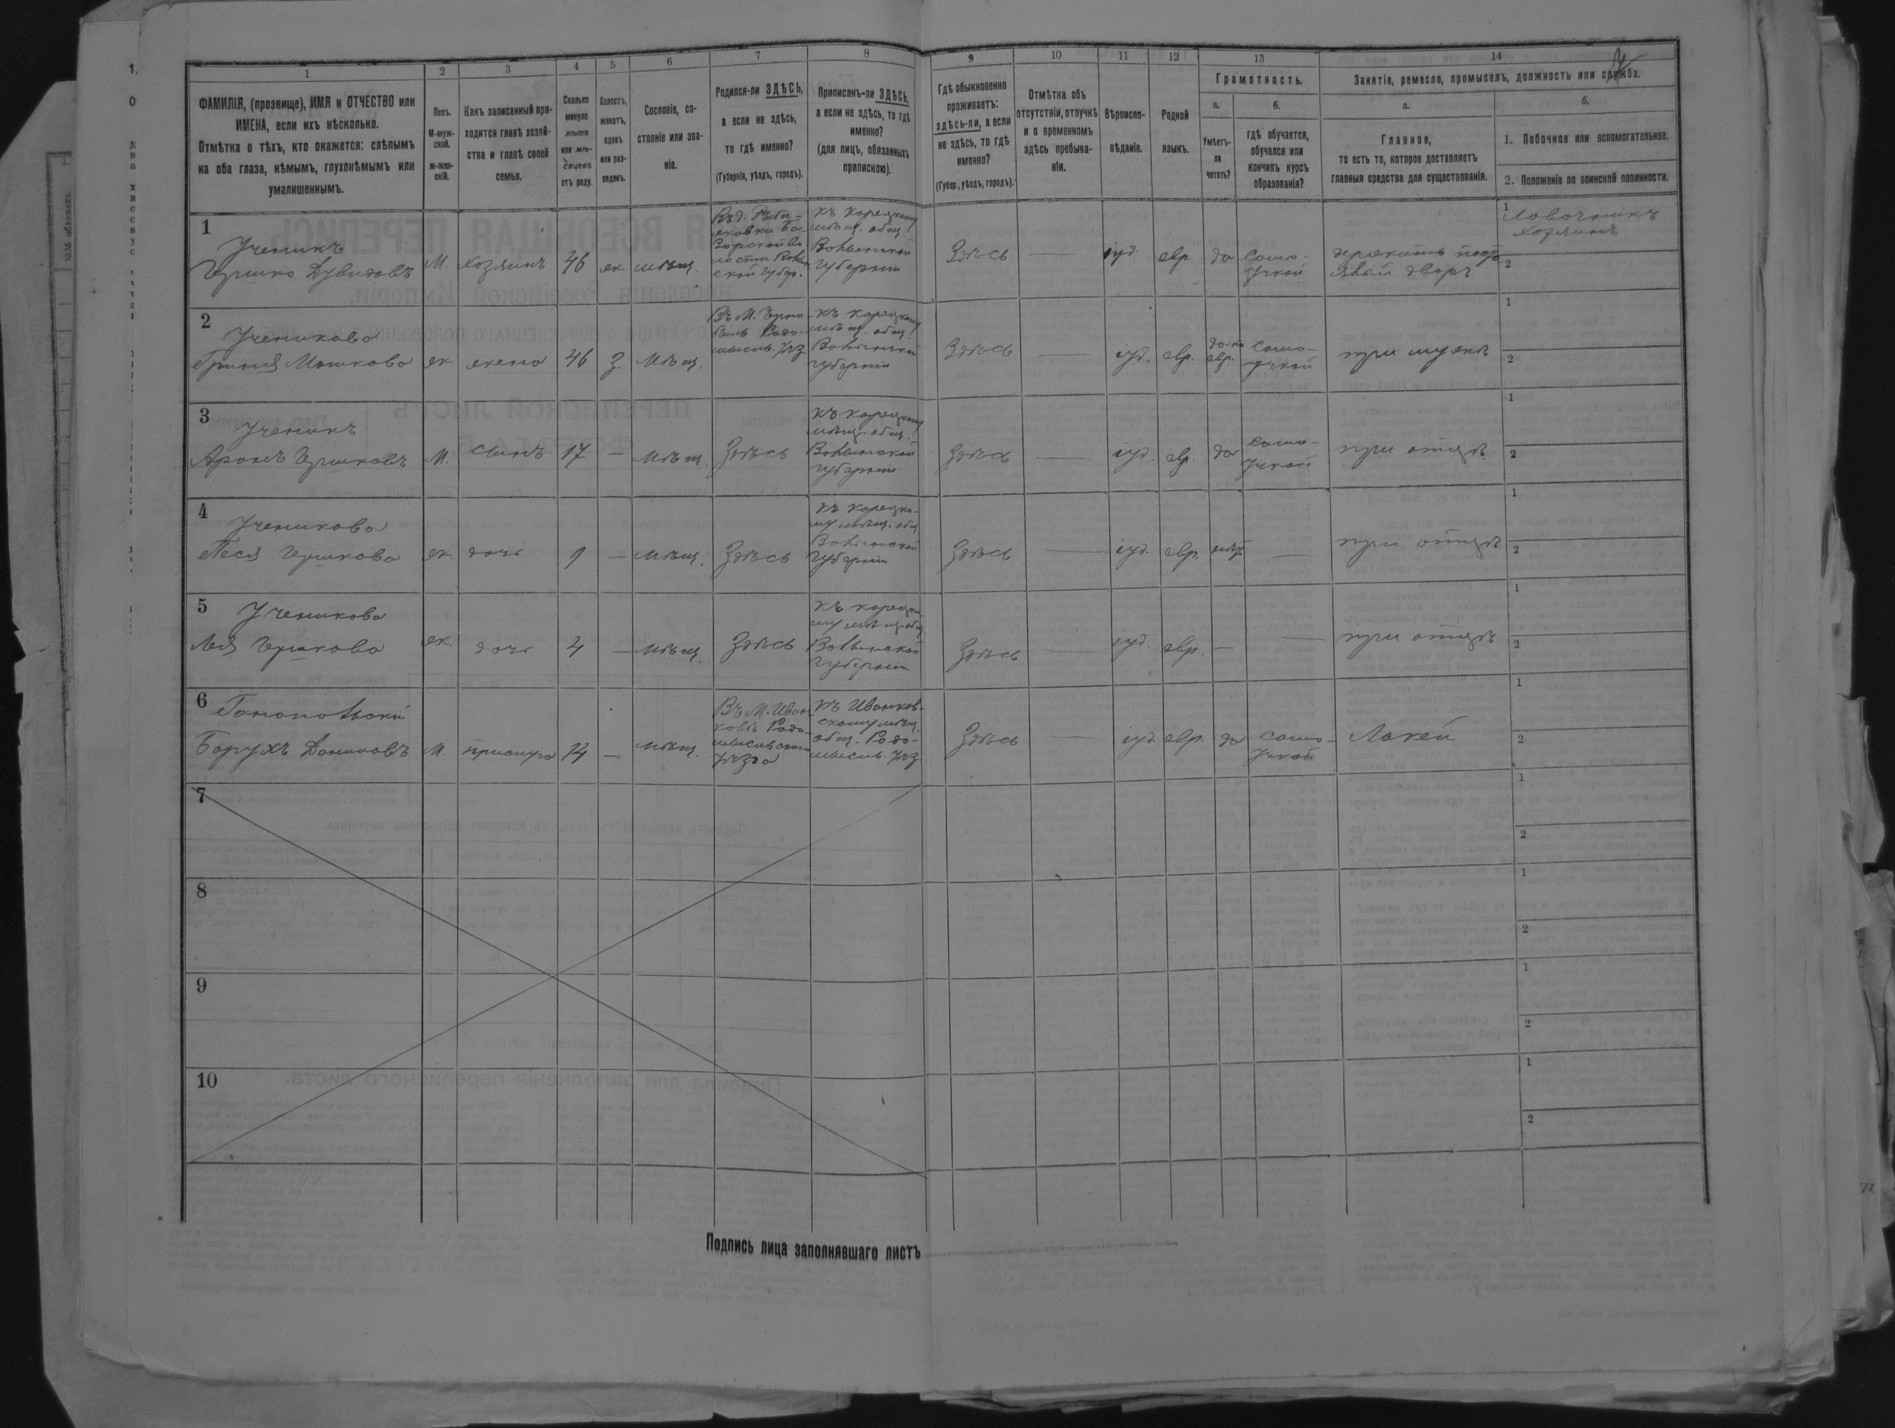 1 2 3 4 5 6 7 8 9 10 11 12 13 14
ФАМИЛІЯ, (прозвище), ИМЯ и ОТЧЕСТВО или
ИМЕНА, если ихъ нѣсколько.
Отмѣтка о тѣхъ, кто окажется: слѣпымъ
на оба глаза, нѣмымъ, глухонѣмымъ или
умалишеннымъ.
Полъ.
М-муж-
ской.
ж-жен-
скій.
Какъ записанный при-
ходится главѣ хозяй-
ства и главѣ своей
семьи.
Сколько
минуло
лѣтъ
или мѣ-
сяцевъ
отъ роду.
Холостъ,
женатъ,
вдовъ
или раз-
веденъ.
Сословіе, со-
стояніе или зва-
ніе.
Родился-ли ЗДѢСЬ,
а если не здѣсь,
то гдѣ именно?
(Губернія, уѣздъ, городъ).
Приписанъ-ли ЗДѢСЬ,
а если не здѣсь, то гдѣ
именно?
(для лицъ, обязанныхъ
припискою).
Гдѣ обыкновенно
проживаетъ:
здѣсь-ли, а если
не здѣсь, то гдѣ
именно?
(Губер., уѣздъ, городъ).
Отмѣтка объ
отсутствіи, отлучкѣ
и о временномъ
здѣсь пребыва-
ніи.
Вѣроиспо-
вѣданіе.
Родной
языкъ.
Грамотность.
а.
Умѣетъ-
ли
читать?
б.
гдѣ обучается,
обучался или
кончилъ курсъ
образованія?
Занятіе, ремесло, промыселъ, должность или служба.
а.
Главное,
то есть то, которое доставляетъ
главныя средства для существованія.
б.
1. Побочное или вспомогательное.
2. Положеніе по воинской повинности.
1
Ученикъ
Гершко Дувидовъ
М. хозяинъ 46 ж. мѣщ.
къ Корецкому
мѣщ. общ.
Волынской
губерніи
Здѣсь — іуд. евр. да само-
учкой
держитъ посто-
ялый дворъ
1 Лавочникъ
хозяинъ
2
2
Ученикова
Мошкова ж. жена 46 з. мѣщ.
Въ М. Черно-
былѣ Радо-
мысльс. уѣз
къ Корецкому
мѣщ. общ.
Волынской
губерніи
Здѣсь — іуд. евр.
евр.
само-
учкой
при мужѣ
1
2
3
Ученикъ
Аронъ Гершковъ М. сынъ 17 — мѣщ. Здѣсь
къ Корецкому
мѣщ. общ.
Волынской
губерніи
Здѣсь — іуд. евр. да само-
учкой
при отцѣ
1
2
4
Ученикова
Песя Гершкова ж. дочь 9 — мѣщ. Здѣсь
къ Корецко-
му мѣщ. общ
Волынской
губерніи
Здѣсь — іуд. евр. нѣт — при отцѣ
1
2
5
Ученикова
Лея Гершкова ж. дочь 4 — мѣщ. Здѣсь
къ Корецко-
му мѣщ. общ
Волынской
губерніи
Здѣсь — іуд. евр. — — при отцѣ
1
2
6
Борухъ М. прислуга 14 — мѣщ.
Въ М. Иван-
ковѣ Радо-
мысльскаго
уѣзда
къ Иванков-
скому мѣщ.
общ. Радо-
мысльс. уѣз
Здѣсь — іуд. евр. да само-
учкой
Лакей
1
2
7
1
2
8
1
2
9
1
2
10
1
2
Подпись лица заполнявшаго листъ